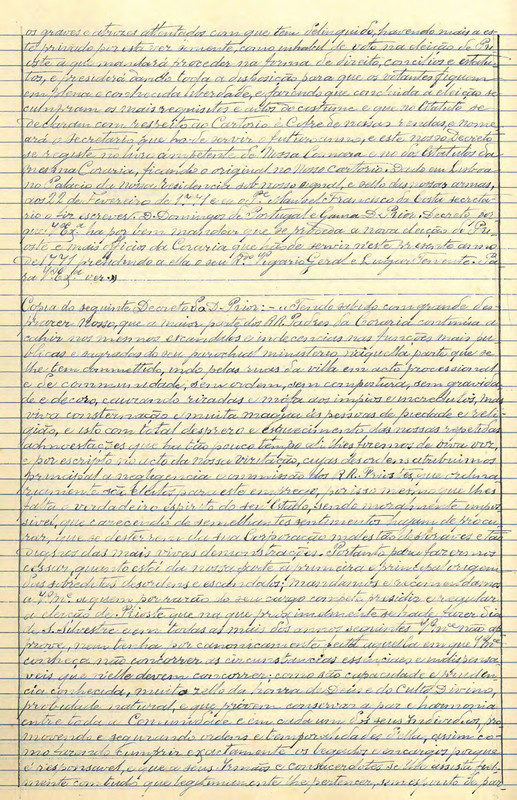 os graves e atrozes attentados com que tem delinquido, havendo mais a es-
te privado por esta vez somente, como inhabil de voto na eleição de Pri-
oste a que mandará proceder na forma de direito, concilios e estatu-
tos, e presidirá dando toda a disposição para que os votantes fiquem
em plena e conhecida liberdade, e fazendo que concluida a eleição se
cumpram os mais requisitos e actos do costume e que no Estatuto se
declaram com respeito ao Cartorio e Cofre de nossas rendas, e nome-
ará o secretario que ha de servir o futuro anno, e este nosso Decreto
se registe no livro competente de Nossa Camara e no dos Estatutos da
mesma Coraria, ficando o original no Nosso cartorio. Dado em Lisboa
no Palacio de Nossa Residencia sob nosso signal, e sello das nossas armas,
aos 22 de Fevereiro de 1771 e eu Manuel Francisco da Costa secreta-
rio o fiz escrever. D. Domingos de Portugal e Gama D. Prior. Decreto por
que V. Ex.ª ha por bem mandar que se proceda a nova eleição de Pri-
oste e mais officios da Coraria que hão de servir n'este presente anno
de 1771 presidindo a ella o seu Vigario Geral e Lugar Tenente. Pa-
ra V. Ex.ª ver »
Copia do seguinte Decreto do D. Prior: — « Tendo sabido com grande des-
prazer Nosso, que a maior parte dos RR. Padres da Coraria continúa a
cahir nos mesmos escandalos e indecencias nas funcções mais pu-
blicas e sagradas do seu parochial ministerio, n'aquella parte que se
lhe tem commettido, indo pelas ruas da villa em acto processional
e de communidade, sem ordem, sem compostura, sem gravidade
e decoro, causando risadas e mofa aos impios e incredulos, mas
viva consternação e muita magua ás pessoas de piedade e reli-
gião, e isto com total desprezo e esquecimento das nossas repetidas
admoestações que ha tão pouco tempo até lhes fizemos de viva voz,
e por escripto no acto da nossa visitação, cujas desordens attribuimos
principal a negligencia e ommissão dos RR. Priostes, que ordina-
riamente são eleitos para este emprego, por isso mesmo que lhes
falta o verdadeiro espirito do seu estado, sendo moralmente impos-
sivel, que carecendo de semelhantes sentimentos hajam de procu-
rar, que se desterrem da sua Corporação molestias tão graves e tão
dignas das mais vivas demonstrações. Portanto para fazermos
cessar, quanto está da nossa parte a primeira e principal origem
dos sobreditos desordens e escandalos: mandamos e recommendamos
a V. M.cê a quem por razão do seu cargo compete presidir e regular
a eleição de Prioste que na que proximamente se ha de fazer dia
de S. Silvestre e em todas as mais dos annos seguintes V. M.cê não ap-
prove, nem tenha por canonicamente feita aquella em que V. M.cê
conheça não concorrer as circumstancias essenciaes e indispensa-
veis que n'elle devem concorrer; como são capacidade e pruden-
cia conhecida, muito zelo da honra de Deus e do Culto Divino,
probidade natural, e que provem conservar a paz e harmonia
entre toda a Communidade e em cada um dos seus Individuos, pro-
movendo e segurando ordens e temporalidades d'ella, assim co-
mo fazendo cumprir exactamente os legados e encargos porque
é responsavel, e que a seus Irmãos e consacerdotes se lhes assista fiel-
mente com tudo que legitimamente lhe pertencer, sem espirito de par-